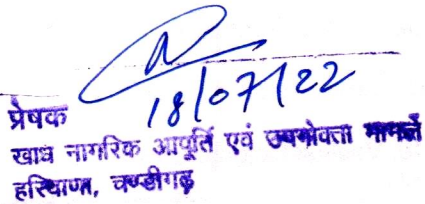 18/07/22
प्रेषक
खाद्य नागरिक आपूर्ति एवं उपभोक्ता मामले
हरियाणा, चण्डीगढ़